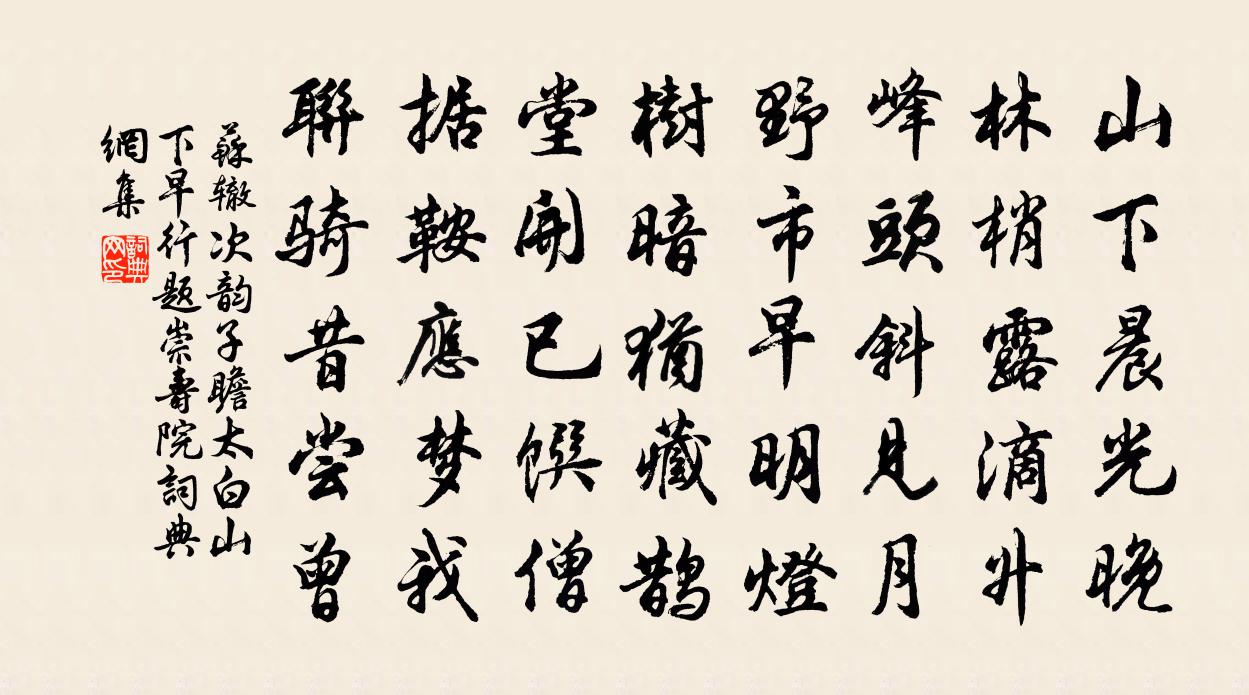 山下晨光晚
林梢露滴升
峰頭斜見月
野市早明燈
樹暗猶藏鹊
堂開已馔僧
据鞍應梦我
聯骑昔尝曾
蘇辙次韵子瞻太白山
下早行题崇壽院詞典
網集
詞典网印